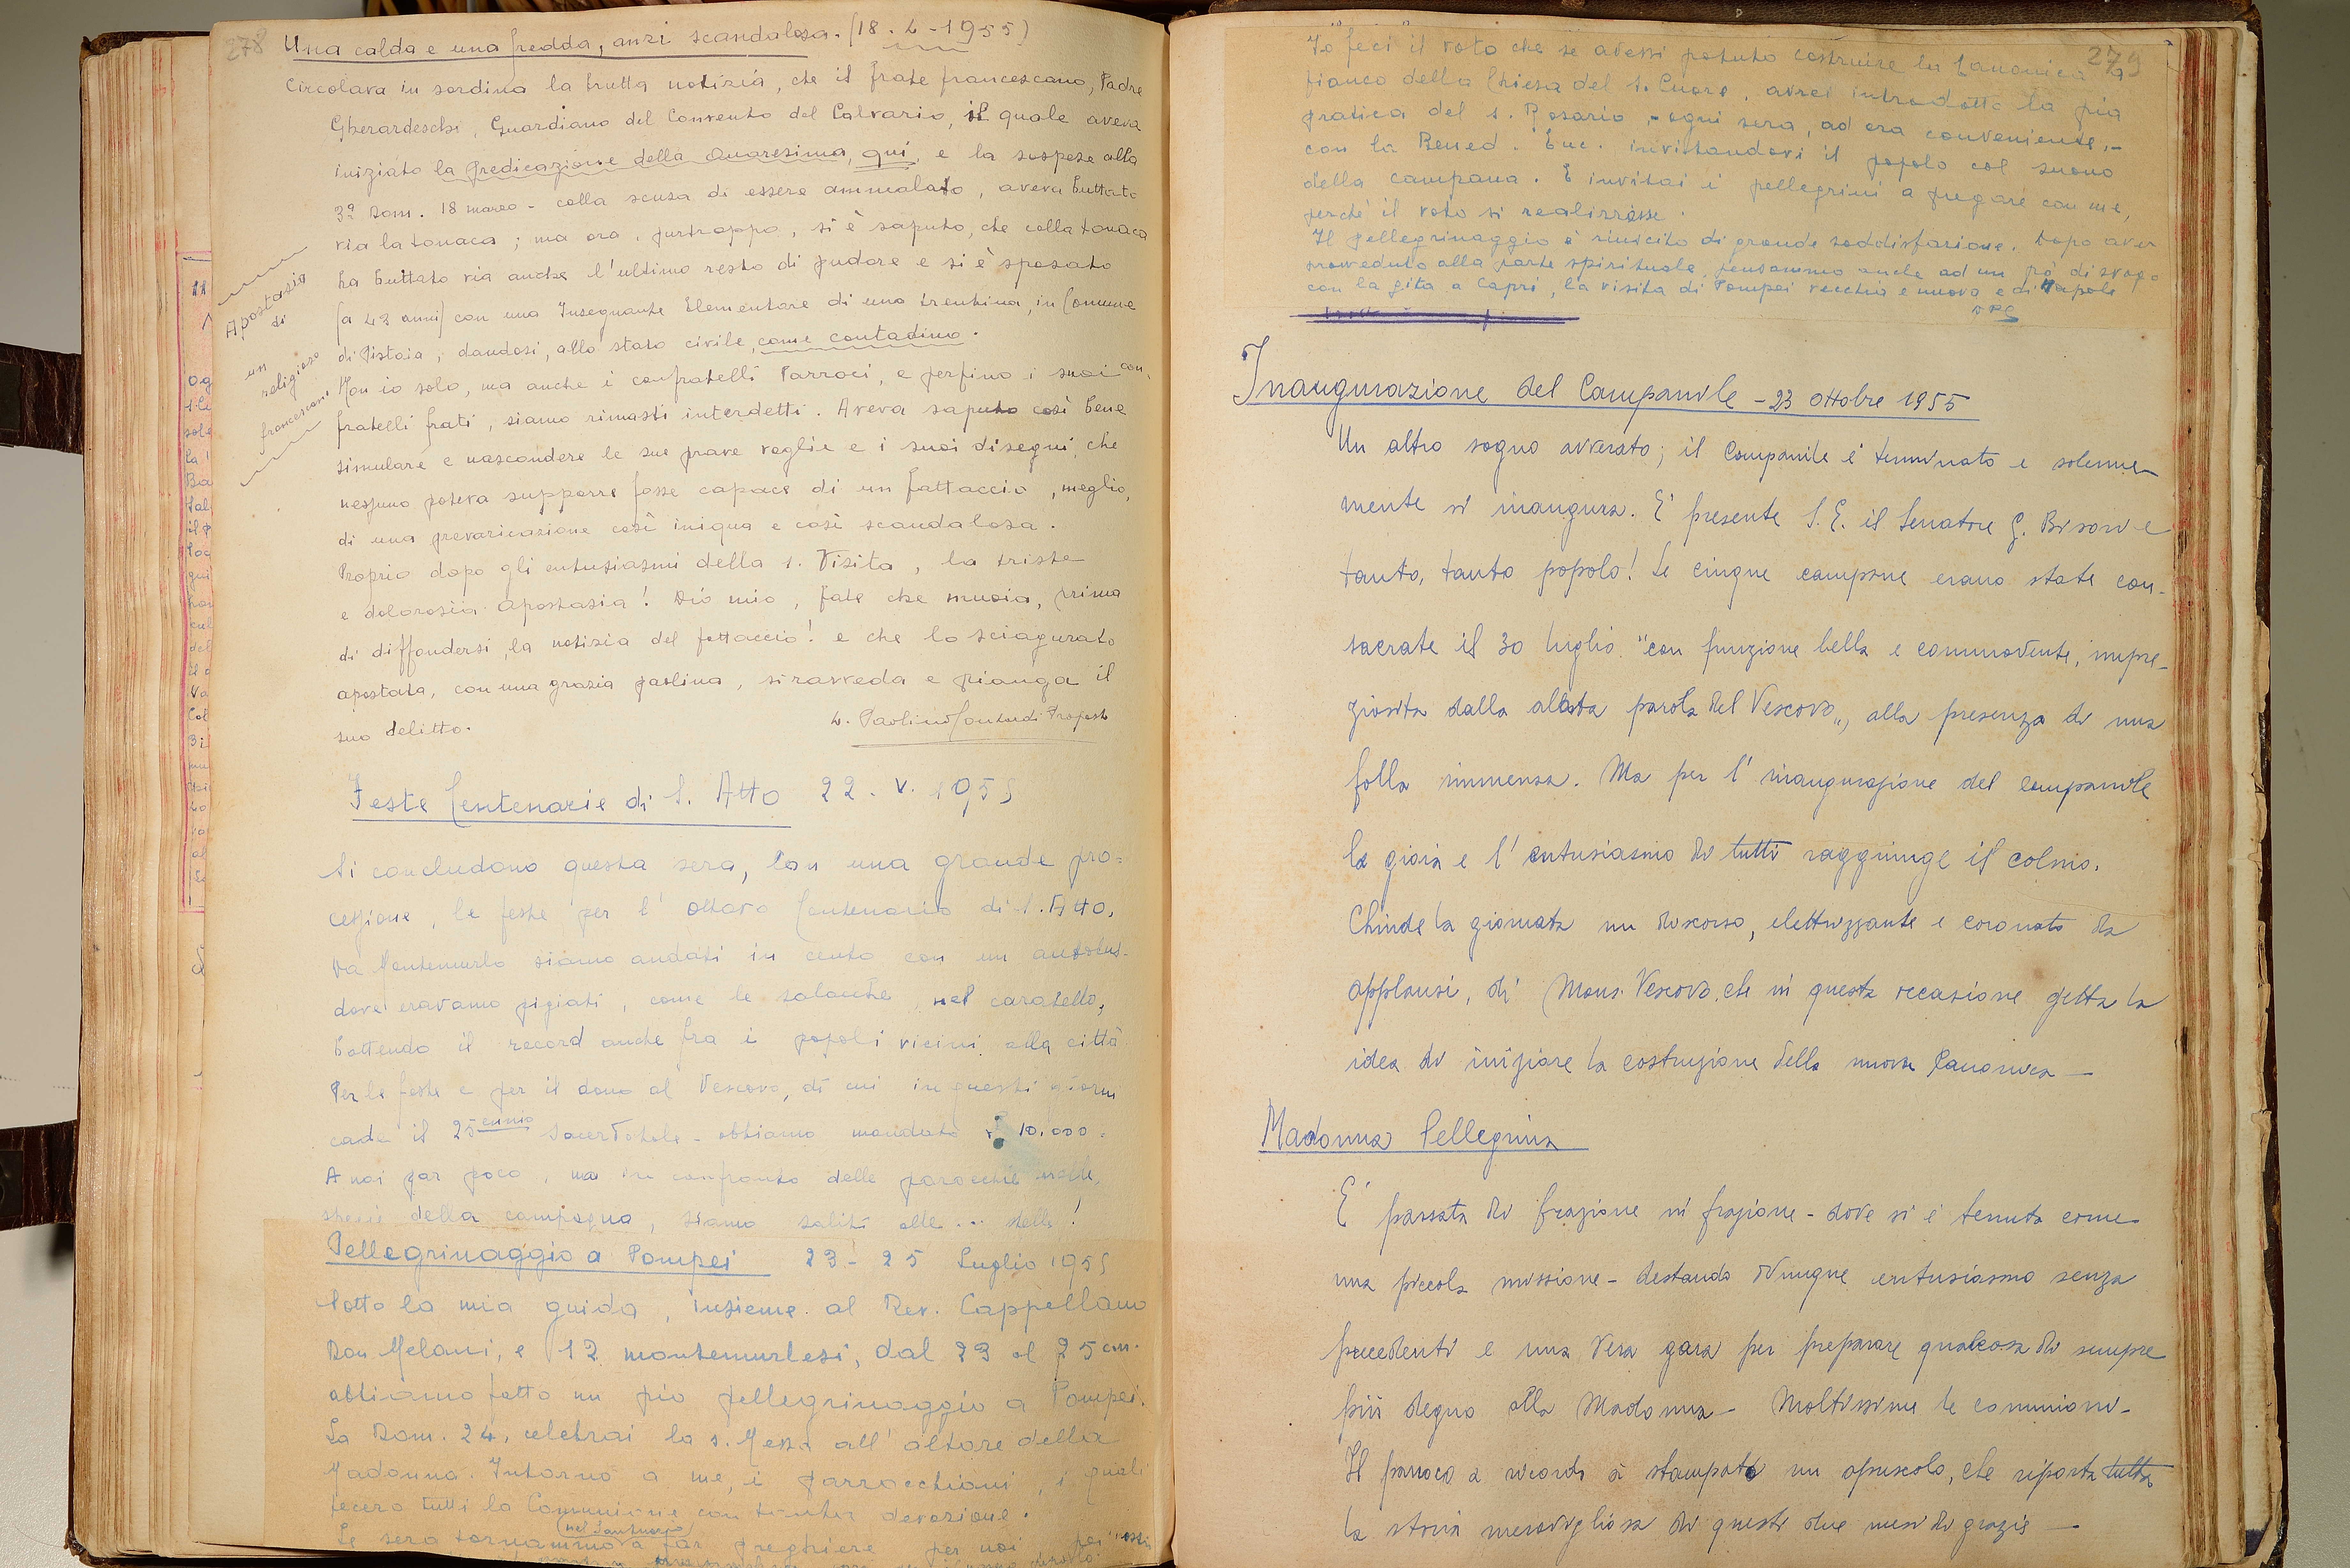 278
Una calda e una fredda, anzi scandalosa. (18. 4 - 1955)
Circolava in sordina la brutta notizia, che il frate francescano, Padre
Gherardeschi, Guardiano del Convento del Calvario, il quale aveva
iniziato la predicazione della Quaresima, qui, e la sospese alla
3ª Dom. 18 marzo - colla scusa di essere ammalato, aveva buttato
via la tonaca; ma ora, purtroppo, si è saputo, che colla tonaca
ha buttato via anche l'ultimo resto di pudore e si è sposato
(a 43 anni) con una Insegnante Elementare di una trentina, in Comune
di Pistoia, dandosi, allo stato civile, come contadino.
Apostasia
di
un
religioso
francescano
Non io solo, ma anche i confratelli Parroci, e perfino i suoi con-
fratelli frati, siamo rimasti interdetti. Aveva saputo così bene
simulare e nascondere le sue prave voglie e i suoi disegni, che
nessuno poteva supporre fosse capace di un fattaccio, meglio,
di una prevaricazione così iniqua e così scandalosa.
Proprio dopo gli entusiasmi della S. Visita, la triste
e dolorosia Apostasia! Dio mio, fate che muoia, prima
di diffondersi, la notizia del fattaccio! e che lo sciagurato
apostata, con una grazia paolina, si ravveda e pianga il
suo delitto.
Paolino Proposto
Feste Centenarie di S. Atto 22. V. 1955
Si concludono questa sera, con una grande pro=
cessione, le feste per l'ottavo Centenario di S. Atto.
Da Montemurlo siamo andati in cento con un autobus-
dove eravamo pigiati, come le salacche nel caratello,
battendo il record anche fra i popoli vicini alla città
Per le feste e per il dono al Vescovo, di cui in questi giorni
cade il 25ennio sacerdotale - abbiamo mandato 10.000.
A noi par poco, ma in confronto delle parocchie molte,
specie della campagna, siamo saliti alle... stelle!
Pellegrinaggio a Pompei 23 - 25 Luglio 1955
Sotto la mia guida, insieme al Rev. Cappellano
Don Melani, e 12 montemurlesi, dal 23 al 25 cm.
abbiamo fatto un pio pellegrinaggio a Pompei.
La Dom. 24, celebrai la s. Messa all'altare della
Madonna. Intorno a me, i parrocchiani, i quali
fecero tutti la Comunione con tanta devozione.
(nel Santuario)
La sera tornammo a far preghiere per noi
279
Io feci il voto che se avessi potuto costruire la Canonica a
fianco della Chiesa del S. Cuore, avrei introdotto la pia
pratica del s. Rosario, - ogni sera, ad ora conveniente, -
con la Bened. Euc. invitandovi il popolo col suono
della campana. E invitai i pellegrini a pregare con me,
perchè il voto si realizzasse.
Il pellegrinaggio è riuscito di grande soddisfazione. Dopo aver
provveduto alla parte spirituale, pensammo anche ad un pò di svago
con la gita a Capri, la visita di Pompei vecchia e nuova e di Napole
Inaugurazione del Campanile - 23 ottobre 1955
Un altro sogno avverato; il Campanile è terminato e solenne-
mente si inaugura. E' presente S.E. il Senatore G. Bisori e
tanto, tanto popolo! Le cinque campane erano state con-
sacrate il 30 luglio "con funzione bella e commovente, impre-
ziosita dalla alata parola del Vescovo„, alla presenza di una
folla immensa. Ma per l'inaugurazione del campanile
la gioia e l'entusiasmo di tutti raggiunge il colmo.
Chiude la giornata un discorso, elettrizzante e coronato da
applausi, di Mons. Vescovo, che in questa occasione getta la
idea di iniziare la costruzione della nuova Canonica -
Madonna Pellegrina
E' passata di frazione in frazione - dove si è tenuta come
una piccola missione - destando dovunque entusiasmo senza
precedenti e una vera gara per preparare qualcosa di sempre
più degno alla Madonna - Moltissime le comunioni -
Il parroco a ricordo à stampato un opuscolo, che riporta tutta
la storia meravigliosa di questi due mesi di grazie -